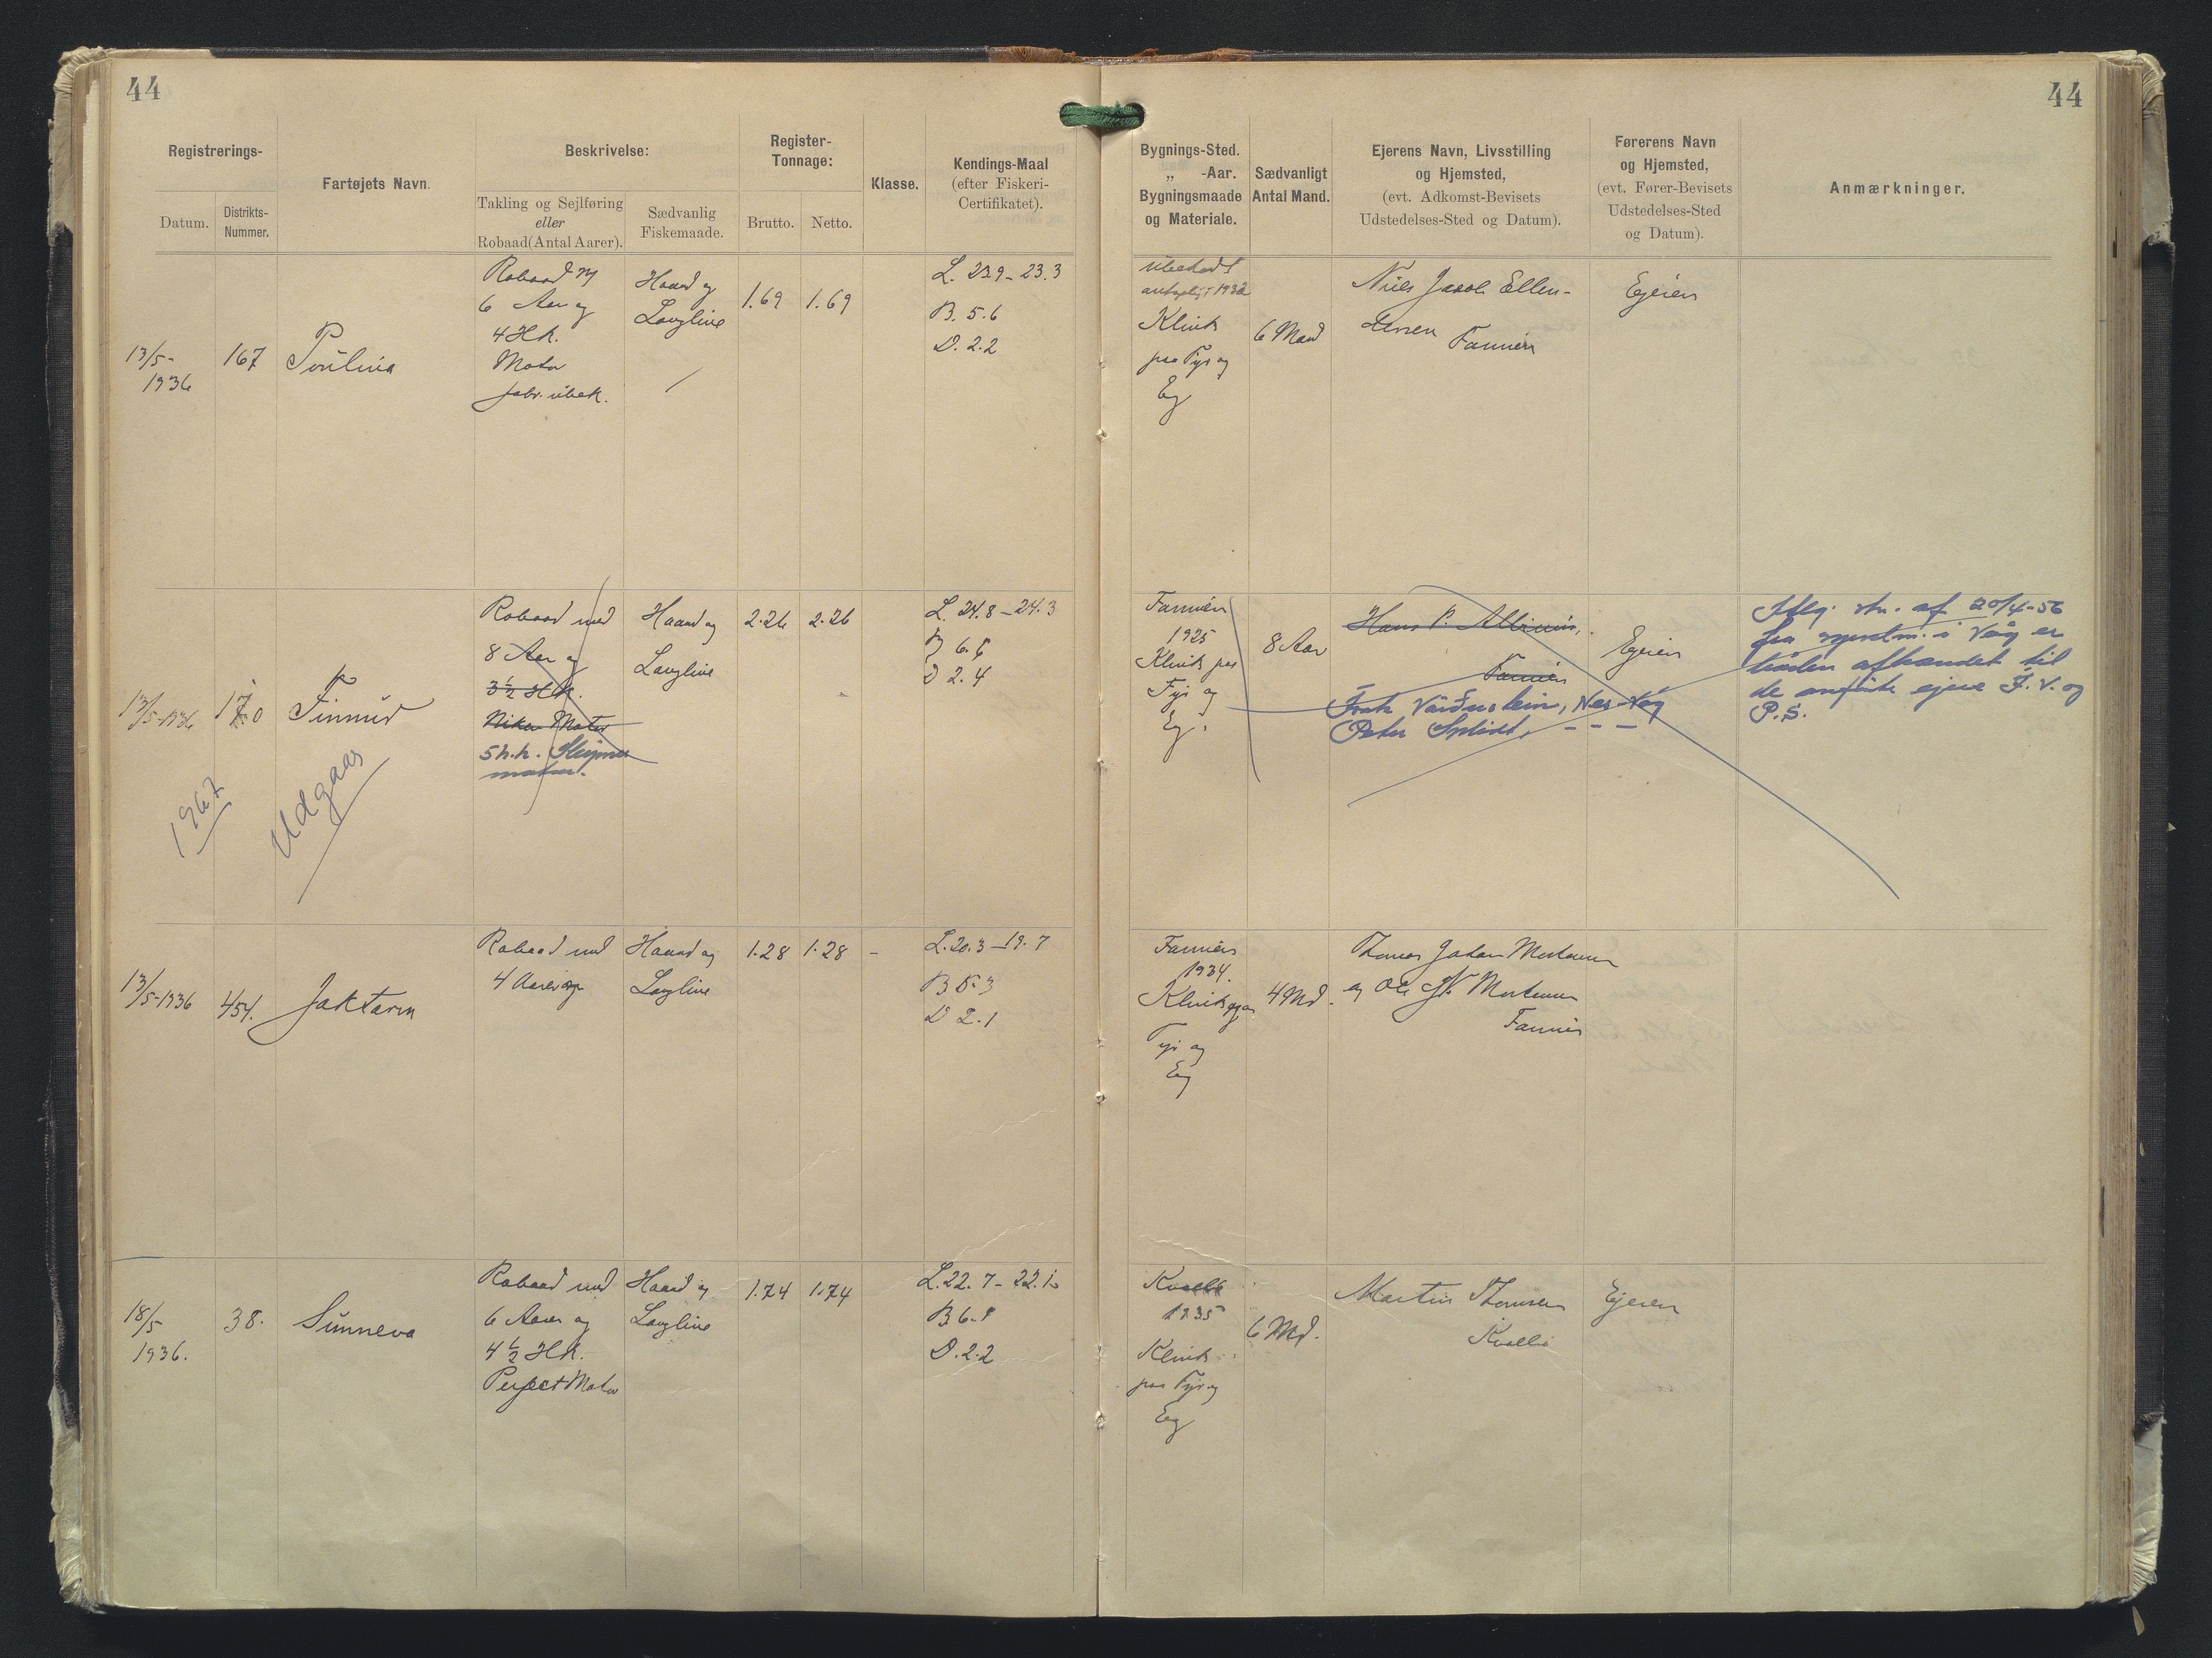 44
44
Registrerings-
Datum.
Distrikts-
Nummer.
Fartøjets Navn.
Beskrivelse:
Takling og Sejlføring
eller
Robaad (Antal Aarer).
Sædvanlig
Fiskemaade.
Register-
Tonnage:
Brutto.
Netto.
Klasse.
Kendings-Maal
(efter Fiskeri-
Certifikatet).
Bygnings-Sted.
„ -Aar.
Bygningsmaade
og Materiale.
Sædvanligt
Antal Mand.
Ejerens Navn, Livsstilling
og Hjemsted,
(evt. Adkomst-Bevisets
Udstedelses-Sted og Datum).
Førerens Navn
og Hjemsted,
(evt. Fører-Bevisets
Udstedelses-Sted
og Datum).
Anmærkninger.
13/5-
1936
167
Poulina
Robaad M
6 Aar og
4 Hk.
Motor
fabr. ubek.
Haand og
Langline
1.69
1.69
L. 23.9 - 23.3
B. 5.6
D. 2.2
ubekendt
1932
Klink
paa Fyr og
Eg
6 Mand
Niels Jacob Ellen-
Famien
Ejeren
13/5-1936
170
Finnur
1967
Udgaar
Robaad med
8 Aar og
3½ Hk.
Motor
5 h.k. Sleipner
motor.
Haand og
Langline
2.26
2.26
L. 24.8 - 24.3
B 6.5
D 2.4
Famien
1925
Klink paa
Fyr og
Eg.
8 Aar
Hans P.
Famien
Peter
Ejeren
Iflg. skr. af 20/4-56
fra sysselm. i Våg er
båden afhændet til
de anførte ejere F. V. og
P. S.
13/5-1936
454.
Jaktarin
Robaad med
4 Aarer
Haand og
Langline
1.28
1.28
-
L. 20.3 - 19.7
B 5.3
D 2.1
Famien
1934.
Klink paa
Fyr og
Eg
4 Md.
Thomas Johan Mortensen
og Ole N. Mortensen
Famien
18/5
1936.
38.
Sunneva
Robaad med
6 Aarer og
4½ Hk.
Perfect Motor
Haand og
Langline
1.74
1.74
L. 22.7 - 22.1
B 6.1
D. 2.2
Kvalbø
1935
Klink
paa Fyr og
Eg
6 Md.
Martin Thomsen
Kvalbø
Ejeren